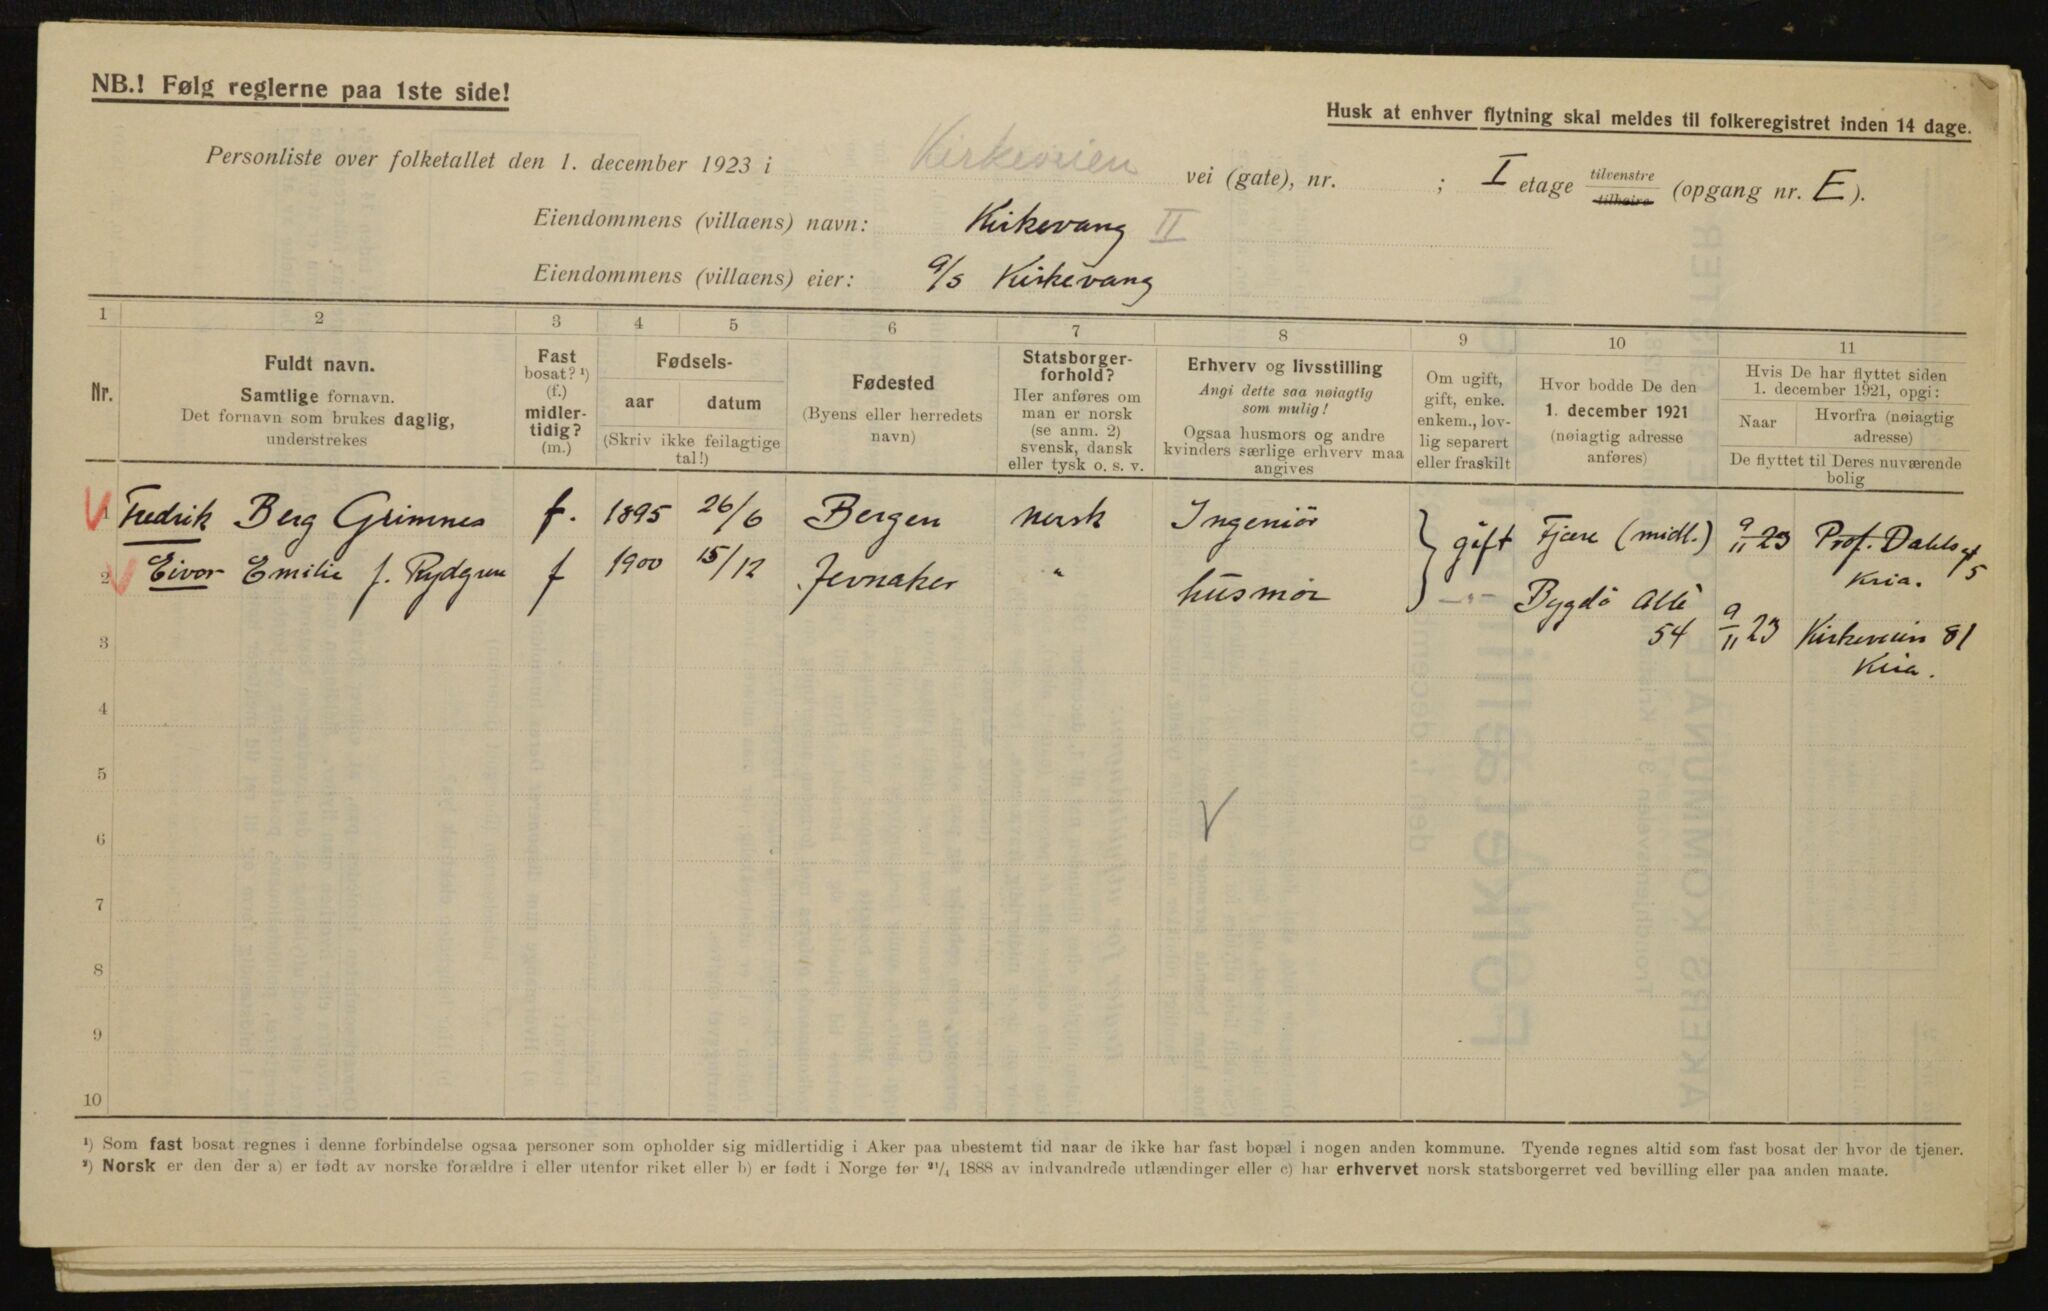 NB.! Følg reglerne paa 1ste side!
Husk at enhver flytning skal meldes til folkeregistret inden 14 dage.
Personliste over folketallet den 1. december 1923 i Kirkeveien vei (gate), nr. ; I etage tilvenstre tilhøire (opgang nr. E).
Eiendommens (villaens) navn: Kirkevang II
Eiendommens (villaens) eier: a/s Kirkevang
1 2 3 4 5 6 7 8 9 10 11
Nr.
Fuldt navn.
Samtlige fornavn.
Det fornavn som brukes daglig,
understrekes
Fast
bosat? ¹)
(f.)
midler-
tidig?
(m.)
Fødsels-
aar datum
(Skriv ikke feilagtige
tal!)
Fødested
(Byens eller herredets
navn)
Statsborger-
forhold?
Her anføres om
man er norsk
(se anm. 2)
svensk, dansk
eller tysk o. s. v.
Erhverv og livsstilling
Angi dette saa nøiagtig
som mulig!
Ogsaa husmors og andre
kvinders særlige erhverv maa
angives
Om ugift,
gift, enke.
enkem., lov-
lig separert
eller fraskilt
Hvor bodde De den
1. december 1921
(nøiagtig adresse
anføres)
Hvis De har flyttet siden
1. december 1921, opgi:
Naar Hvorfra (nøiagtig
adresse)
De flyttet til Deres nuværende
bolig
1 Fredrik Berg Grimnes f. 1895 26/6 Bergen norsk Ingeniör gift Fjære (midl.) 9/11 23 Prof. Dahls gt 5
Kria.
2 Eivor Emilie f. Rydgren f 1900 15/12 Jevnaker " husmor " Bygdö Allè
54 9/11 23 Kirkeveien 81
Kria.
3
4
5
6
7
8
9
10
¹) Som fast bosat regnes i denne forbindelse ogsaa personer som opholder sig midlertidig i Aker paa ubestemt tid naar de ikke har fast bopæl i nogen anden kommune. Tyende regnes altid som fast bosat der hvor de tjener.
²) Norsk er den der a) er født av norske forældre i eller utenfor riket eller b) er født i Norge før ²¹/₄ 1888 av indvandrede utlændinger eller c) har erhvervet norsk statsborgerret ved bevilling eller paa anden maate.